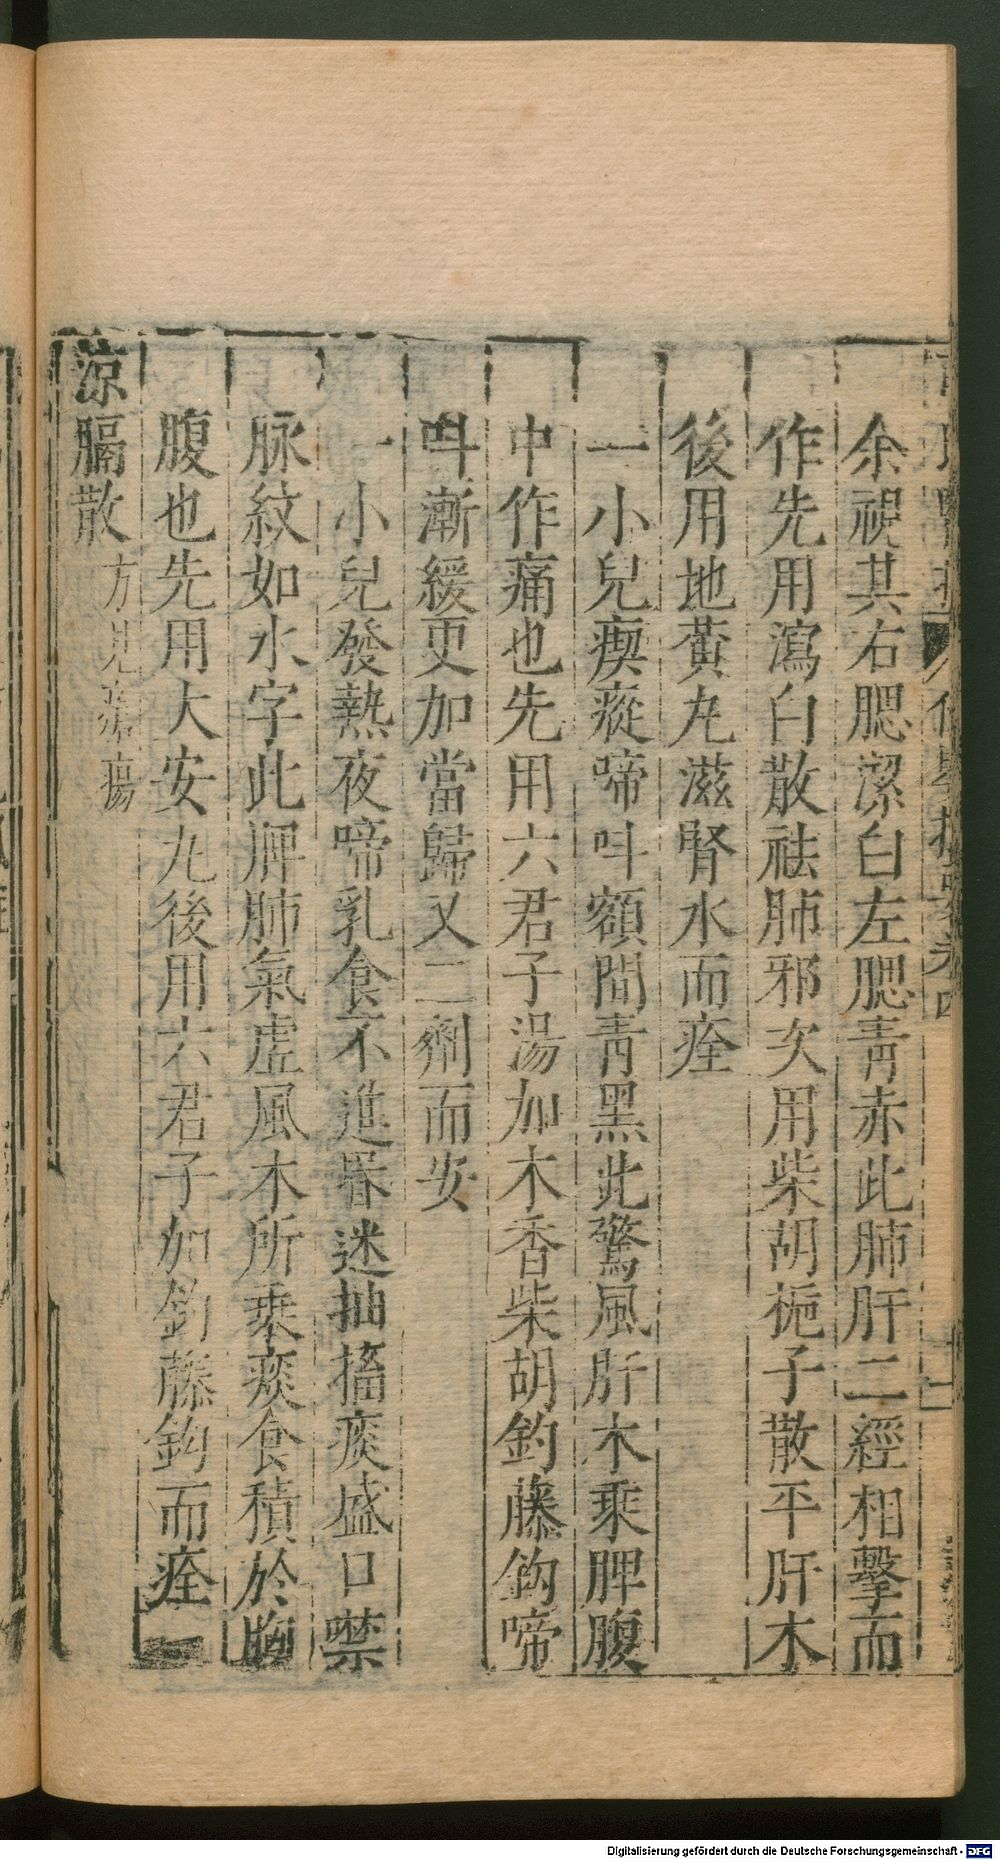 余視其右腮潔白左腮青赤此肺肝二經相擊而
作先用瀉白散祛肺邪次用柴胡梔子散平肝木
後用地黃丸滋腎水而痊
一小兒瘈瘲啼呌額間青黑此驚風肝木乘脾腹
中作痛也先用六君子湯加木香柴胡鈎藤鈎啼
呌漸緩更加當歸又二劑而安
一小兒發熱夜啼乳食不進昏迷抽搐痰盛口噤
脉紋如水字此脾肺氣虛風木所乘痰食積於胸
腹也先用大安丸後用六君子加鈎藤鈎而痊
涼膈散 方見瘡瘍
Digitalisierung gefördert durch die Deutsche Forschungsgemeinschaft - DFG